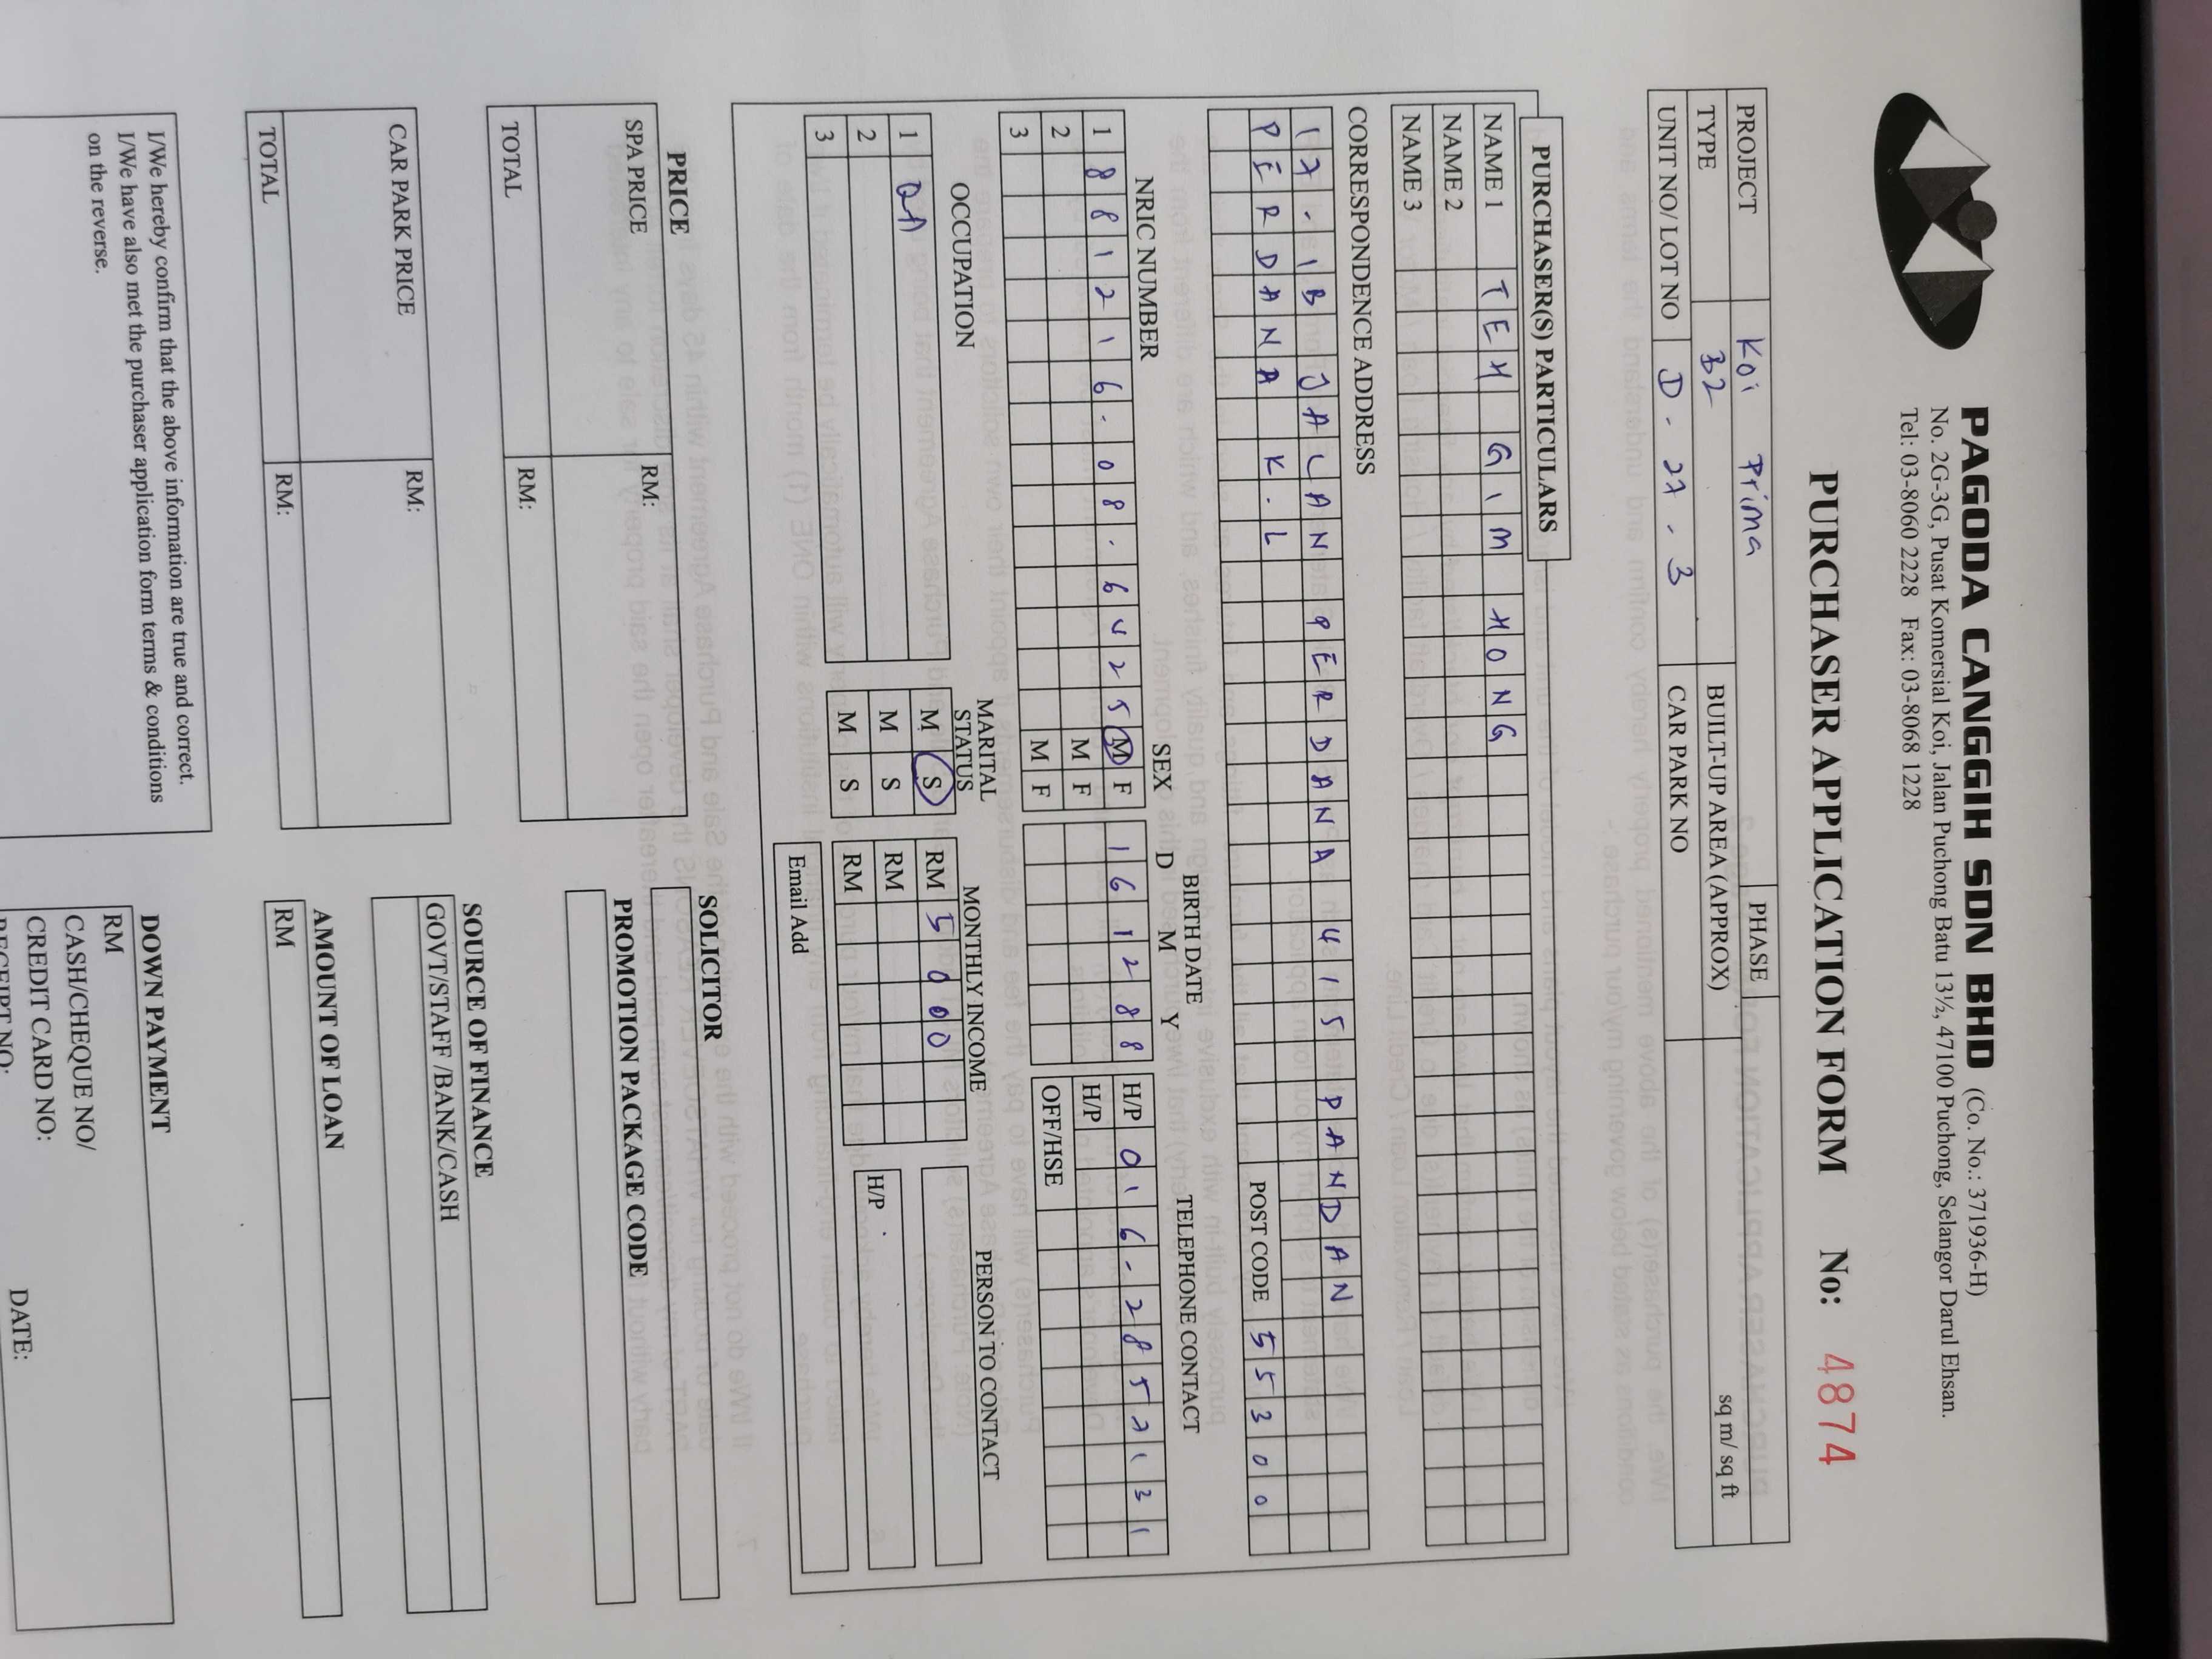 PAGODA CANGGIH SDN BHD (Co. No.: 371936-H)
No. 2G-3G, Pusat Komersial Koi, Jalan Puchong Batu 13½, 47100 Puchong, Selangor Darul Ehsan.
Tel: 03-8060 2228 Fax: 03-8068 1228
PURCHASER APPLICATION FORM No: 4874
PROJECT Koi Prima PHASE
TYPE B2 BUILT-UP AREA (APPROX) sq m/ sq ft
UNIT NO/ LOT NO D - 27 - 3 CAR PARK NO
PURCHASER(S) PARTICULARS
NAME 1 TEH GIM HONG
NAME 2
NAME 3
CORRESPONDENCE ADDRESS
17-1B JALAN PERDANA 4/5 PANDAN
PERDANA K.L
POST CODE 55300
NRIC NUMBER SEX BIRTH DATE TELEPHONE CONTACT
D M Y
1 881216-08-6425 M F 16 12 88 H/P 016-2857131
2 M F H/P
3 M F OFF/HSE
OCCUPATION MARITAL STATUS MONTHLY INCOME PERSON TO CONTACT
1 QA M S RM 5000
2 M S RM H/P
3 M S RM
Email Add
PRICE
SPA PRICE RM:
TOTAL RM:
SOLICITOR
PROMOTION PACKAGE CODE
CAR PARK PRICE RM:
TOTAL RM:
SOURCE OF FINANCE
GOVT/STAFF /BANK/CASH
AMOUNT OF LOAN
RM
I/We hereby confirm that the above information are true and correct.
I/We have also met the purchaser application form terms & conditions
on the reverse.
DOWN PAYMENT
RM
CASH/CHEQUE NO/
CREDIT CARD NO:
RECEIPT NO: DATE: